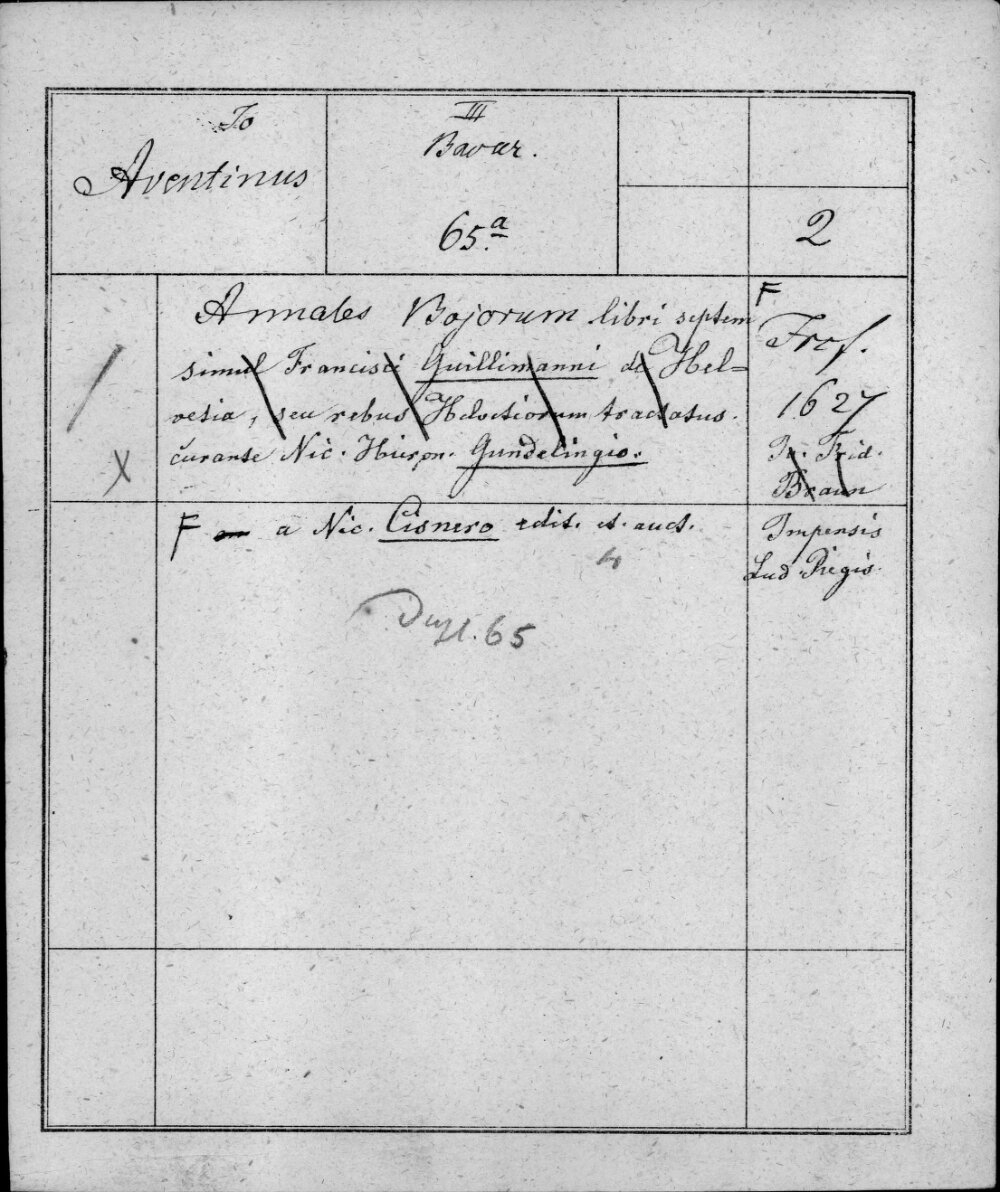 Jo
Aventinus
III
Bavar.
65.a
2
Annales Bojorum libri septem
simul Francisci Guillimanni de Hel=
vetia, seu rebus Helvetiorum tractatus.
curante Nic. Hieron. Gundelingio.
F
Frcf.
1627
Jo. Frid.
Braun
X
F a Nic. Cisnero edit. et. auct.
4
Impensis
Lud. Regis
Dupl. 65